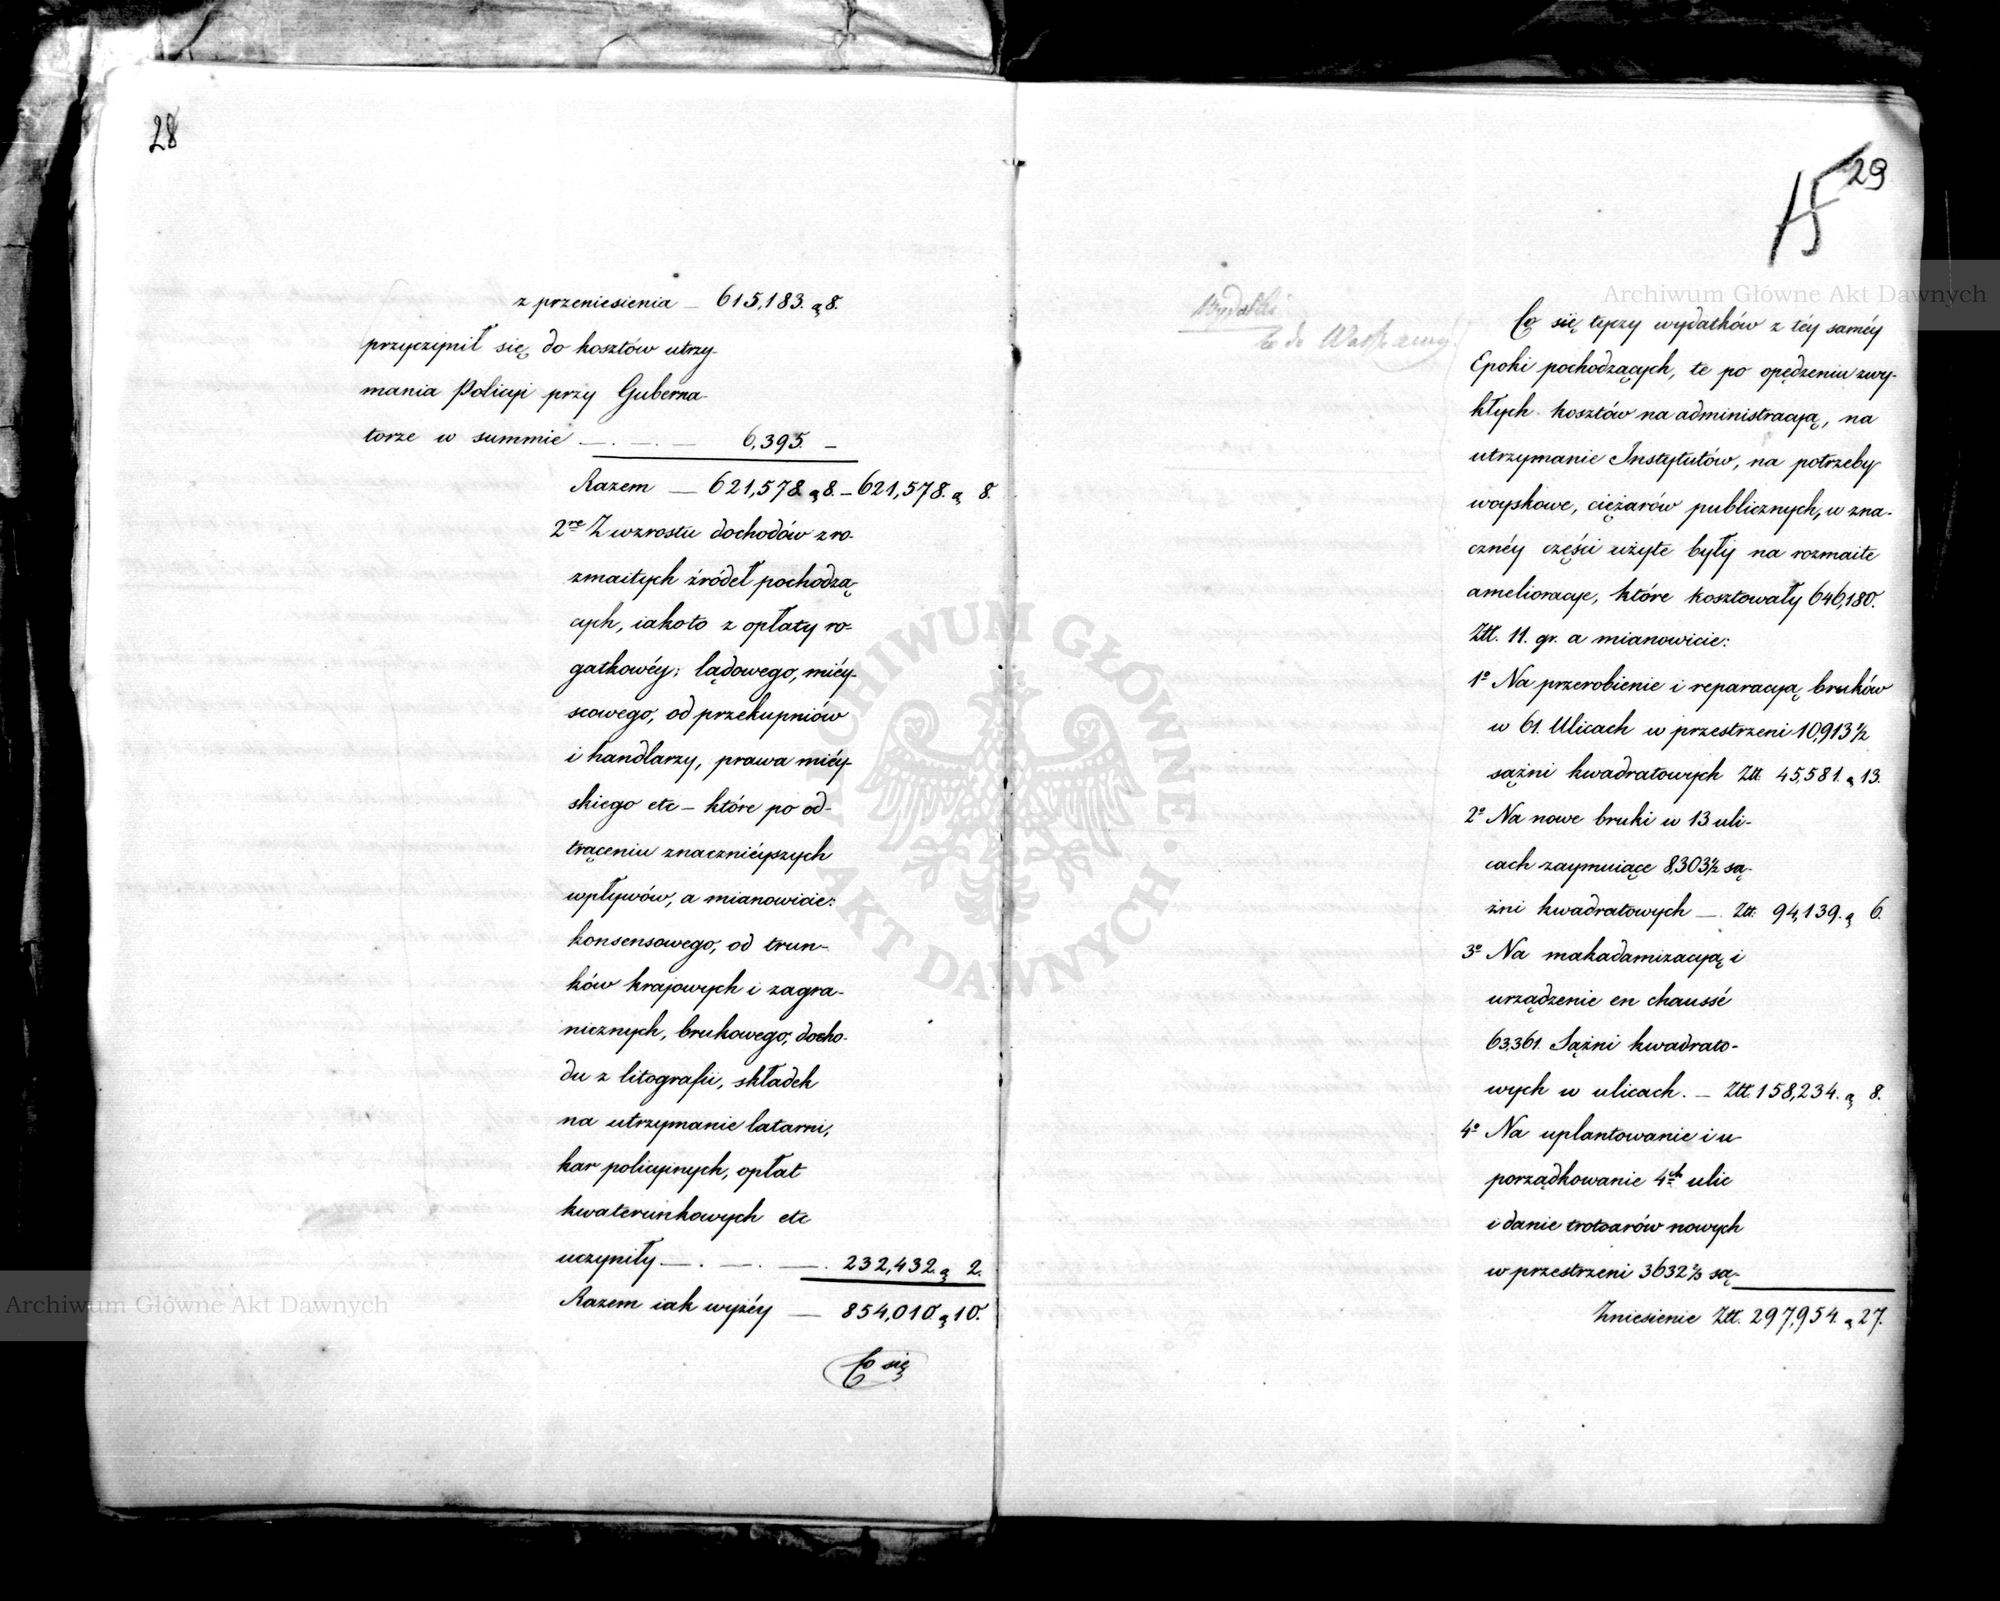 28
z przeniesienia — 615,183. g 8.
przyczynił się do kosztów utrzy-
mania Policyi przy Guberna-
torze w summie —.—.— 6,395. —
Razem — 621,578 g 8. — 621,578. g 8.
2re Z wzrostu dochodów z ro-
zmaitych źródeł pochodzą-
cych, iakoto z opłaty ro-
gatkowéy; lądowego, miéy-
scowego, od przekupniów
i handlarzy, prawa miéy-
skiego etc — które po od-
trąceniu znacznieyszych
wpływów, a mianowicie:
konsensowego, od trun-
ków krajowych i zagra-
nicznych, brukowego, docho-
du z litografii, składek
na utrzymanie latarni,
kar policyinych, opłat
kwaterunkowych etc
uczyniły —.—.—. 232,432. g 2.
Razem iak wyżéy — 854,010. g 10.
Co się
29
15
Wydatki
Co się tyczy wydatków z téy saméy
Epoki pochodzących, te po opędzeniu zwy-
kłych kosztów na administracyą, na
utrzymanie Instytutów, na potrzeby
woyskowe, ciężarów publicznych, w zna-
cznéy części użyte były na rozmaite
amelioracye, które kosztowały 646,180.
Złł. 11. gr. a mianowicie:
1o Na przerobienie i reparacyą bruków
w 61. Ulicach w przestrzeni 10,913 1/2
sążni kwadratowych Złł. 45,581. g 13.
2o Na nowe bruki w 13 uli-
cach zaymuiące 8,303 1/2 są-
żni kwadratowych —. Złł. 94,139. g 6.
3o Na makadamizacyą i
urządzenie en chaussé
63,361. Sążni kwadrato-
wych w ulicach. — Złł. 158,234. g 8.
4o Na uplantowanie i u
porządkowanie 4ch ulic
i danie trotoarów nowych
w przestrzeni 3632 2/3 są-
Zniesienie Złł. 297,954. g 27.
Archiwum Główne Akt Dawnych
Archiwum Główne Akt Dawnych
ARCHIWUM GŁÓWNE AKT DAWNYCH